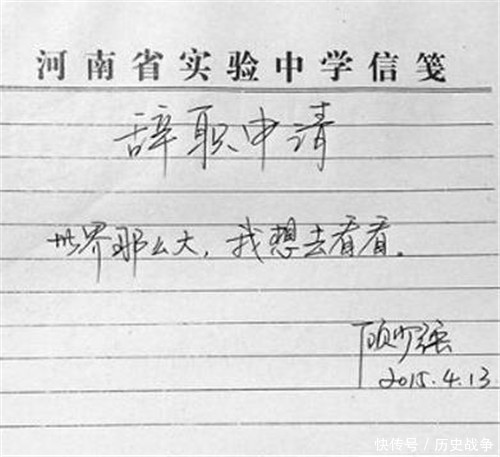 河南省实验中学信笺
辞职申请
世界那么大，我想去看看。
顾少强
2015.4.13
快传号/历史战争